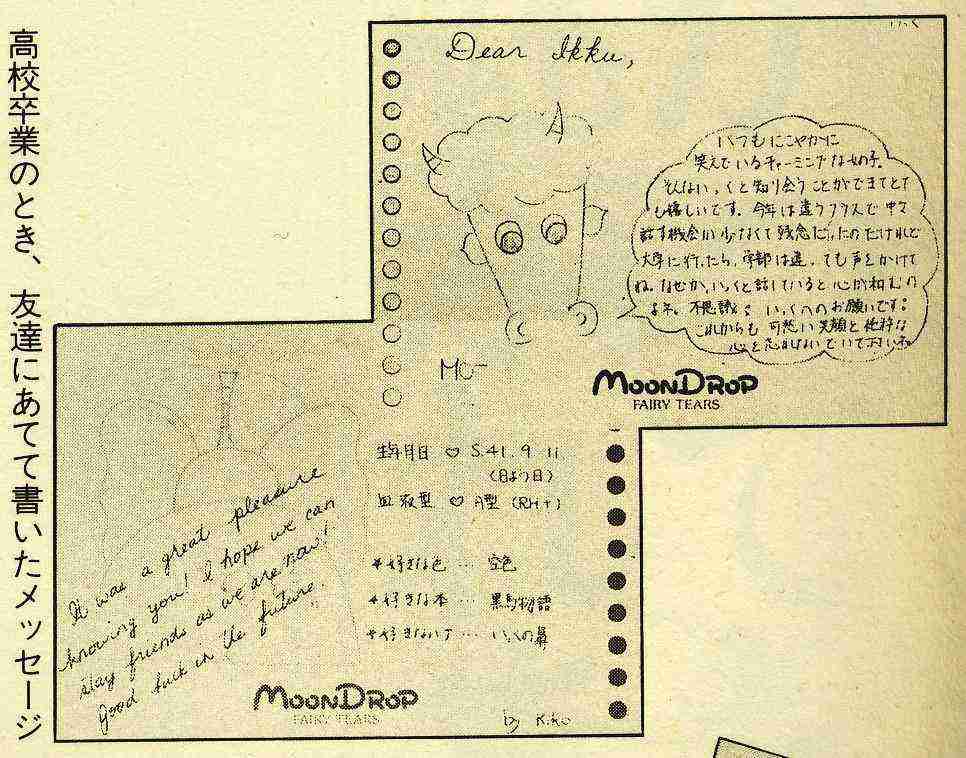 高校卒業のとき、友達にあてて書いたメッセージ
Dear Ikku,
いつもにこやかに
笑えているチャーミングな女の子。
そんないっくと知り合うことができてとて
も嬉しいです。今年は違うクラスで 中々
話す機会が少なくて残念だったのだけれど
大学に行ったら、学部は違っても声をかけて
ね。なぜか、いっくと話していると心が和むの
よネ。不思議。いっくへのお願いです:
これからも 可愛い笑顔と純粋な
心を忘れないでいて下さいネ。
MOONDROP
FAIRY TEARS
生年月日 ♡ S.41. 9. 11
(日よう日)
血液型 ♡ A型 (RH+)
*好きな色 … 空色
*好きな本 … 黒馬物語
*好きな … いっくの鼻
It was a great pleasure
knowing you! I hope we can
stay friends as we are now!
Good luck in the future.
MOONDROP
FAIRY TEARS
by Kiko